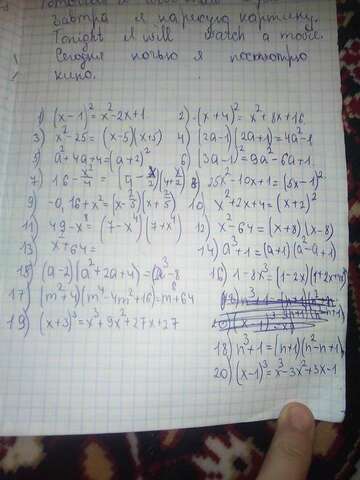 Завтра я нарисую картину.
Tonight I will watch a movie.
Сегодня ночью я посмотрю
кино.
1) (x-1)²=x²-2x+1 2) (x+4)²=x²+8x+16
3) x²-25=(x-5)(x+5) 4) (2a-1)(2a+1)=4a²-1
5) a²+4a+4=(a+2)² 6) (3a-1)²=9a²-6a+1
7) 16-x²/4=(4-x/2)(4+x/2) 8) 25x²-10x+1=(5x-1)²
9) -0,16+x²= 10) x²+2x+4=(x+2)²
11) 49-x⁸=(7-x⁴)(7+x⁴) 12) x²-64=(x+8)(x-8)
13) x²+64= 14) a³+1=(a+1)(a²-a+1)
15) (a-2)(a²+2a+4)=a³-8 16) 1-8x³=(1-2x)(1+2x+
17) (m²+4)(m⁴-4m²+16)=m⁶+64
19) (x+3)³=x³+9x²+27x+27
18) n³+1=(n+1)(n²-n+1)
20) (x-1)³=x³-3x²+3x-1